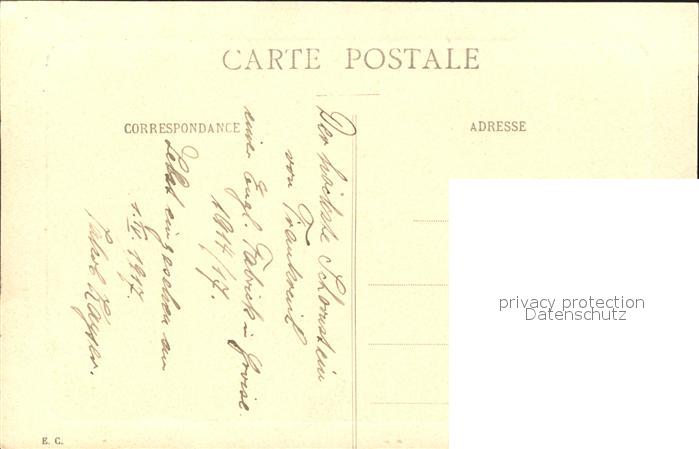 CARTE POSTALE
CORRESPONDANCE
ADRESSE
Der höchste Schornstein
von Frankreich
einer Engl. Fabrick in Croise.
1914/17.
Selbst eingesehen am
1. IV. 1917.
Jakob
E. C.
privacy protection
Datenschutz